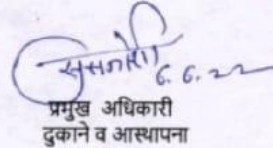 6.6.22
प्रमुख अधिकारी
दुकाने व आस्थापना